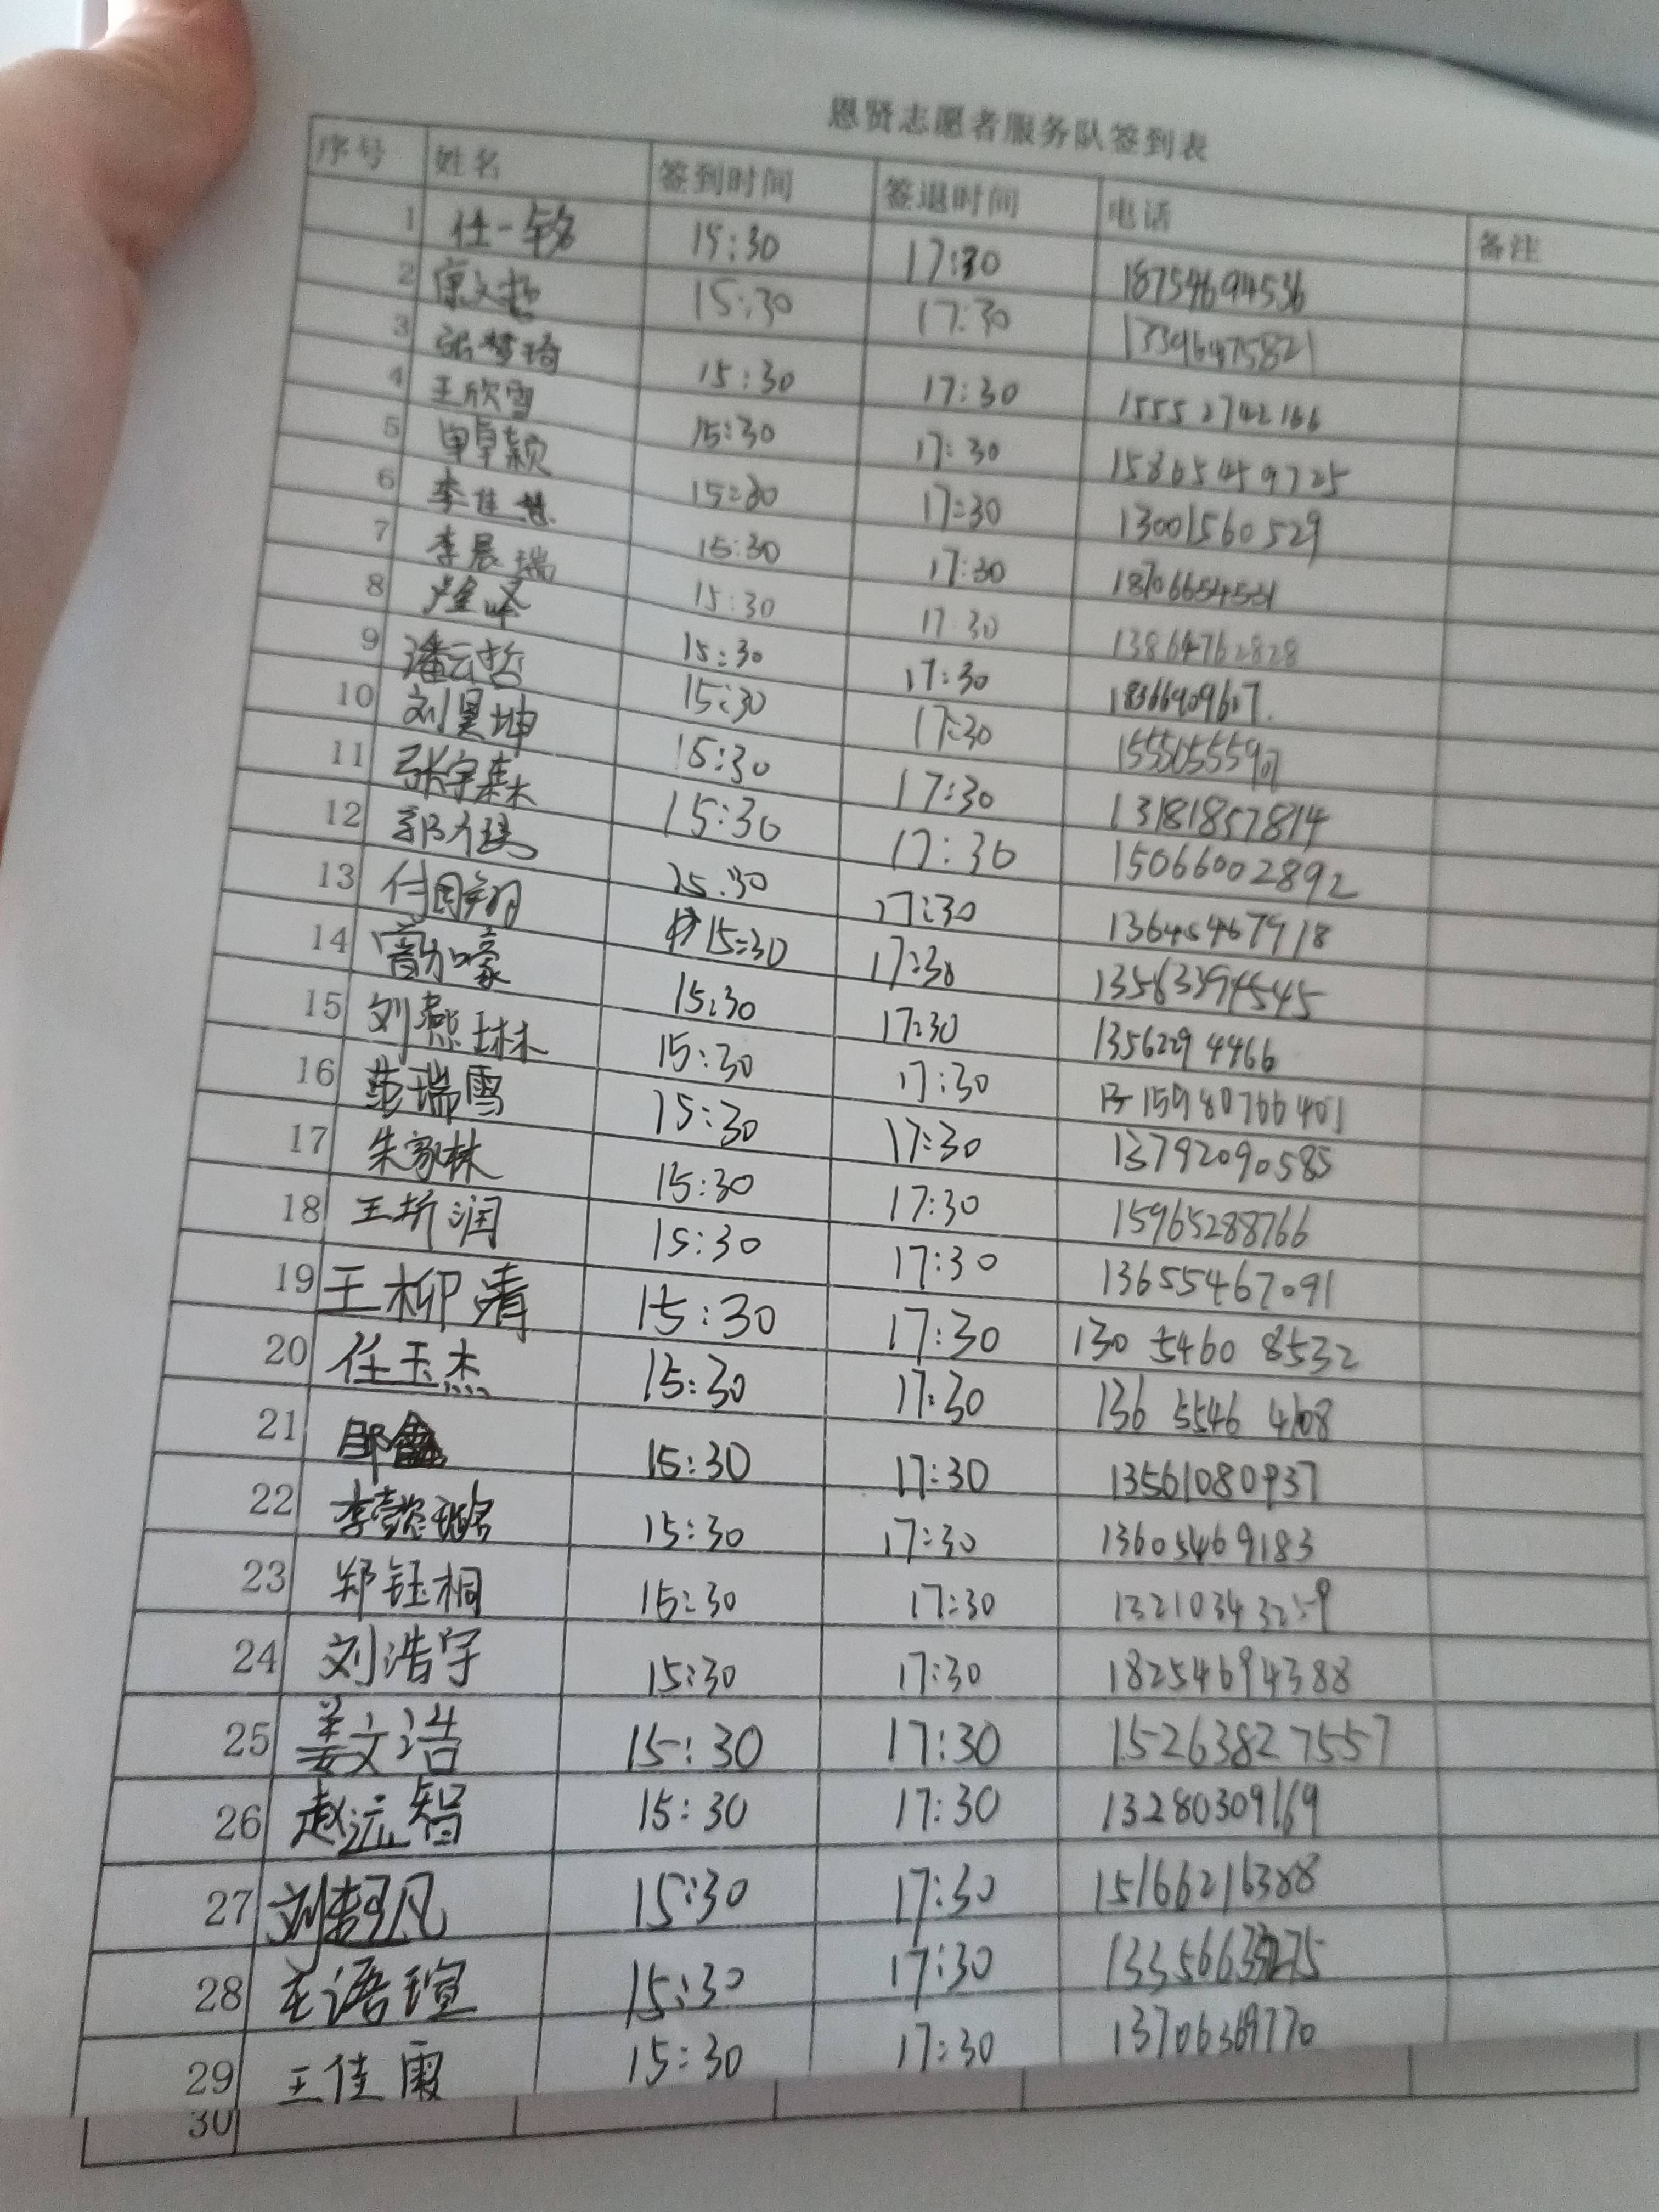 恩贤志愿者服务队签到表
序号 姓名 签到时间 签退时间 电话 备注
1 任一铭 15:30 17:30 18754694536
2 15:30 17:30 13396475821
3 张梦琦 15:30 17:30 15552742166
4 王欣雪 15:30 17:30 15865459725
5 单卓颖 15:30 17:30 13001560529
6 李佳慧 15:30 17:30 18706654531
7 李晨瑞 15:30 17:30 13864762828
8 15:30 17:30 18366909607
9 潘云哲 15:30 17:30
10 刘昊坤 15:30 17:30 13181857814
11 张宇森 15:30 17:30 15066002892
12 15:30 17:30 13645467918
13 付国翔 15:30 17:30 13563394545
14 15:30 17:30 13562294466
15 刘燕琳 15:30 17:30 15980766401
16 范瑞雪 15:30 17:30 13792090585
17 朱家林 15:30 17:30 15965288766
18 王圻润 15:30 17:30 13655467091
19 王柳清 15:30 17:30 130 5460 8532
20 任玉杰 15:30 17:30 136 5546 4108
21 15:30 17:30 13561080937
22 李懿璐 15:30 17:30 13605469183
23 郑钰桐 15:30 17:30
24 刘浩宇 15:30 17:30 18254694388
25 姜文浩 15:30 17:30 15263827557
26 赵沅智 15:30 17:30 13280309169
27 刘轲凡 15:30 17:30 15166216388
28 王语瑄 15:30 17:30
29 王佳霞 15:30 17:30 13706369770
30